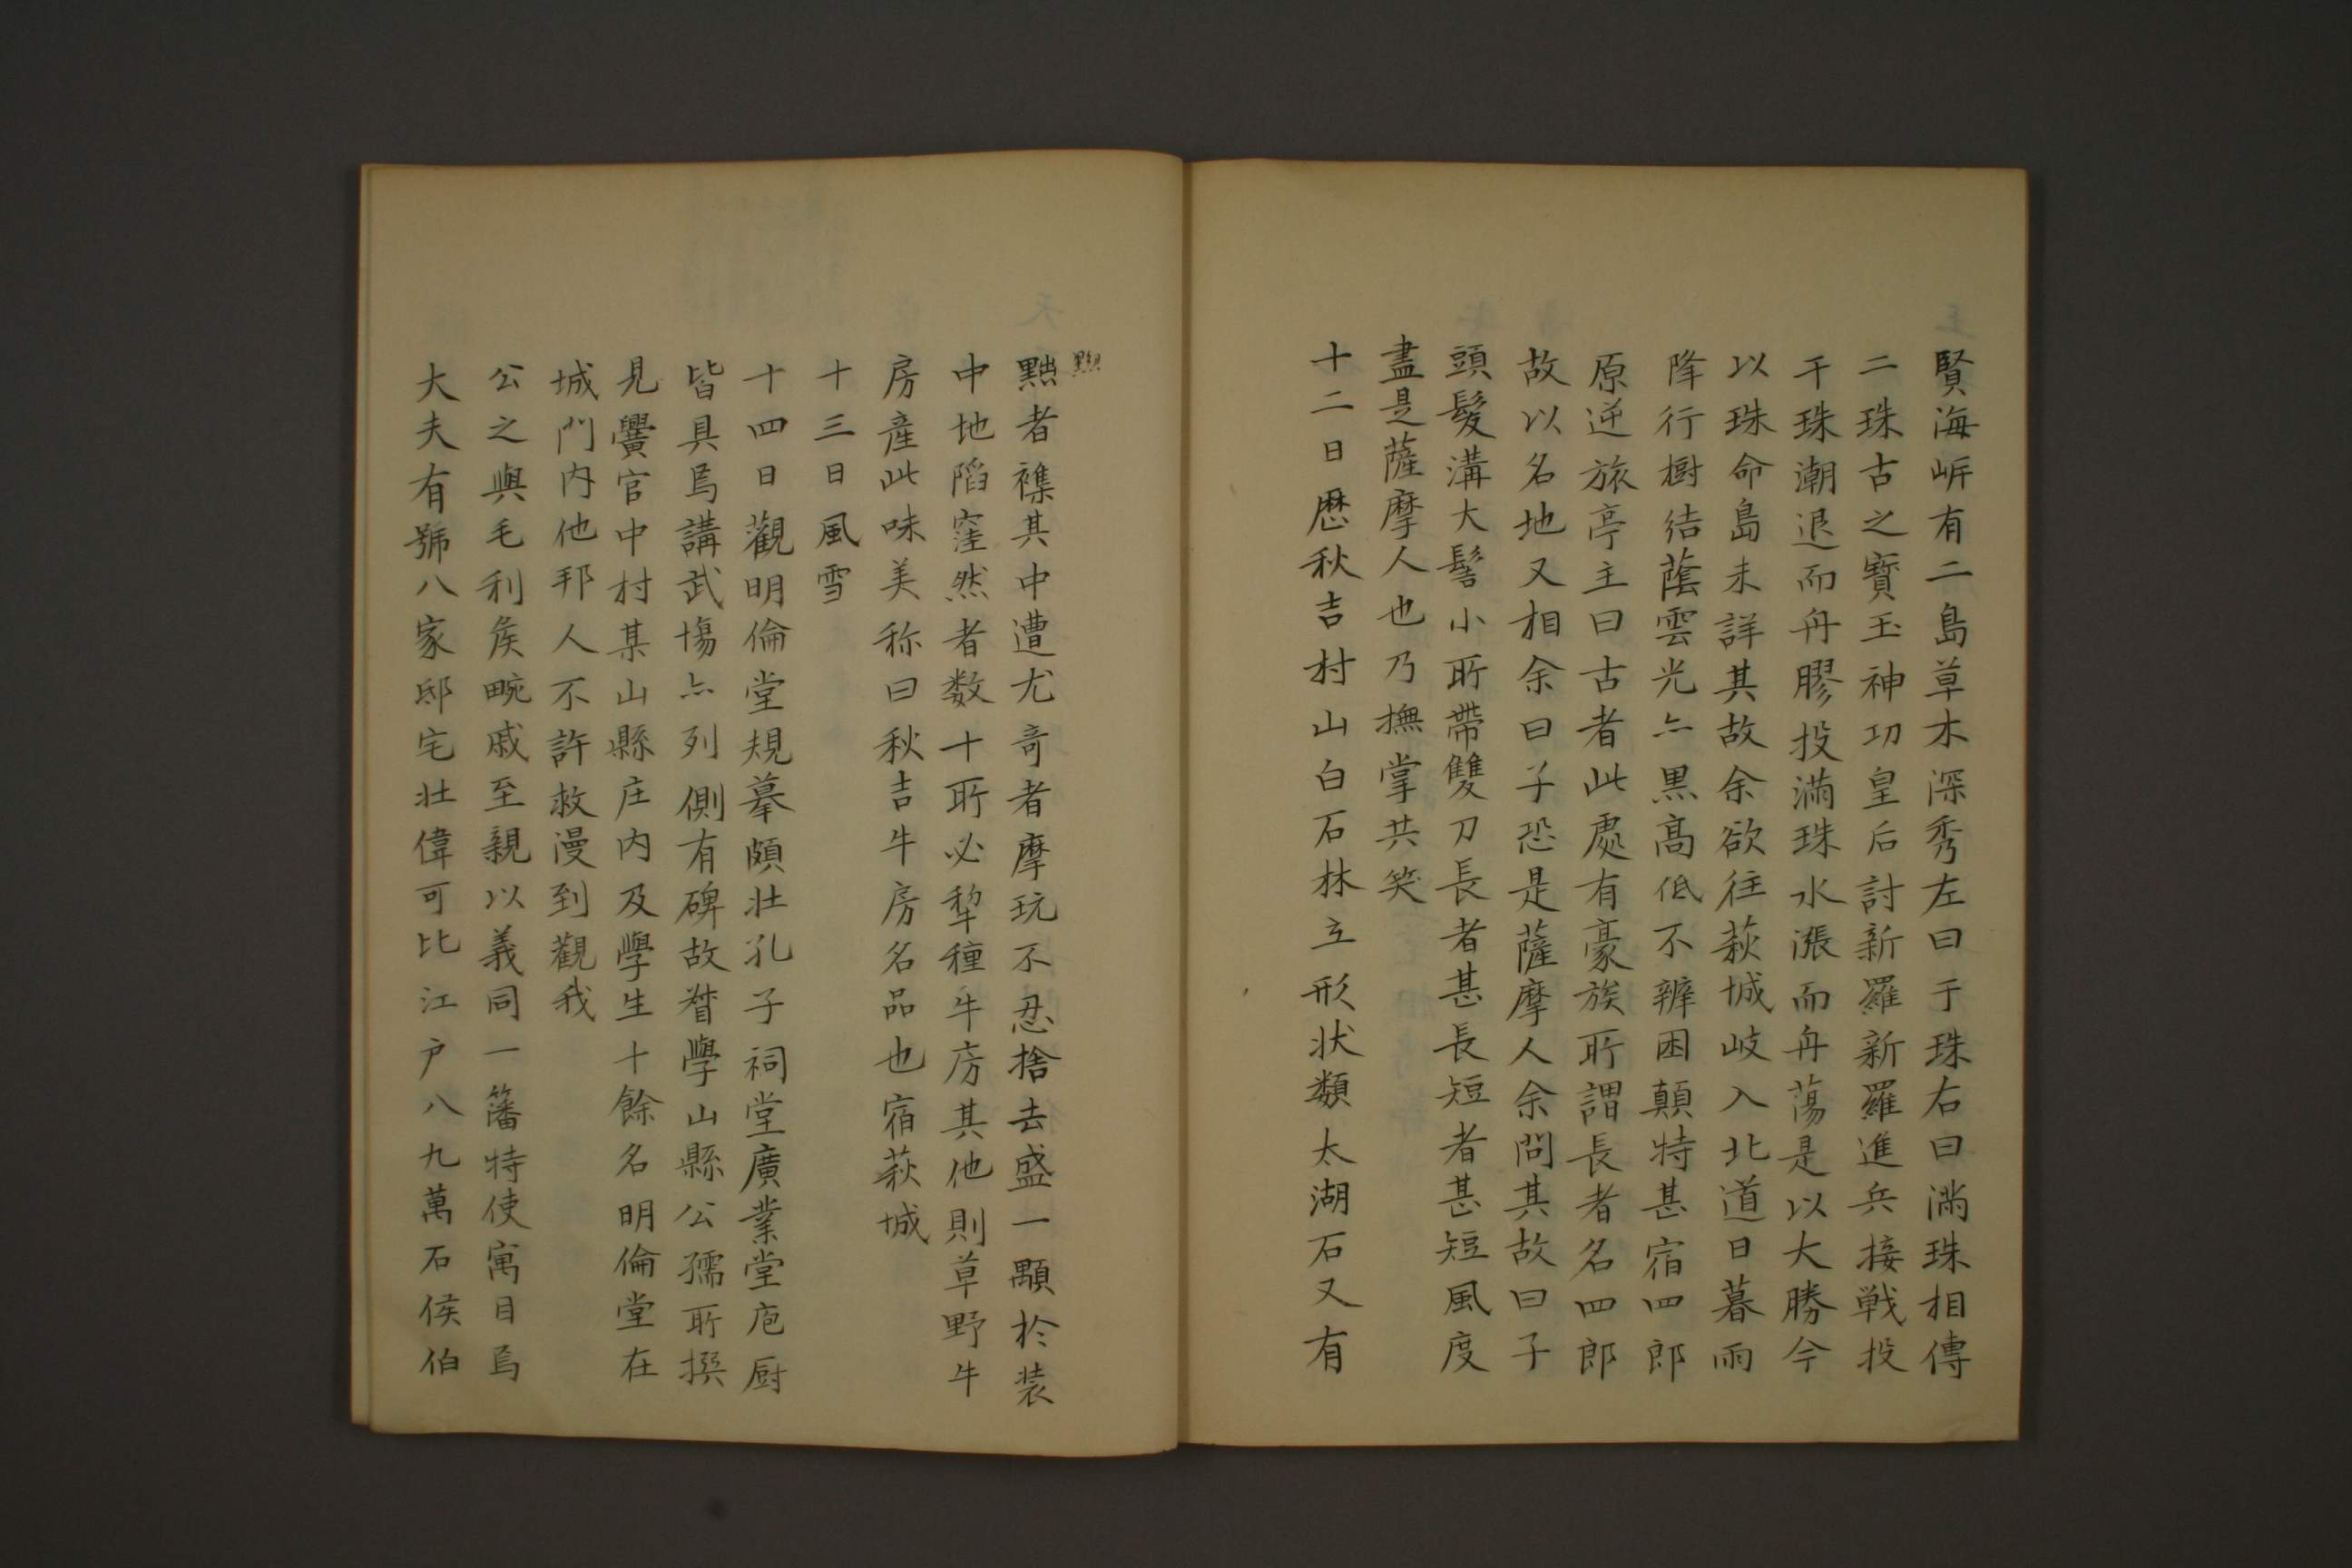 賢海岍有二島草木深秀左曰于珠右曰満珠相傳
二珠古之寳玉神功皇后討新羅新羅進兵接戦投
干珠潮退而舟膠投満珠水漲而舟蕩是以大勝今
以珠命島未詳其故余欲往萩城岐入北道日暮雨
降行樹結蔭雲光亠黒髙低不辨困顛特甚宿四郎
原逆旅亭主曰古者此處有豪族所謂長者名四郎
故以名地又相余曰子恐是薩摩人余問其故曰子
頭髪溝大髻小所帶雙刀長者甚長短者甚短風度
盡是薩摩人也乃撫掌共笑
十二日歴秋吉村山白石林立形状類太湖石又有
黮者襍其中遭尤竒者摩玩不忍捨去盛一顆於装
中地䧟窪然者数十所必犂種牛房其他則草野牛
房産此味美称曰秋吉牛房名品也宿萩城
十三日風雪
十四日觀明倫堂規摹頗壮孔子祠堂廣業堂庖厨
皆具焉講武塲亠列側有碑故督學山縣公孺所撰
見黌官中村某山縣庄内及學生十餘名明倫堂在
城門内他邦人不許救漫到觀我
公之與毛利矦畹戚至親以義同一籓特使寓目焉
大夫有號八家邸宅壮偉可比江户八九萬石侯伯